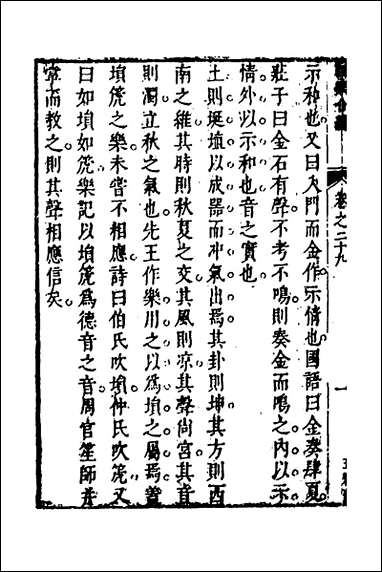 卷之二十九
一
示和也又曰入門而金作示情也國語曰金奏肆夏
莊子曰金石有聲不考不鳴則奏金而鳴之内以示
情外以示和也音之實也
土則埏埴以成器而冲氣出焉其卦則坤其方則西
南之維其時則秋夏之交其風則凉其聲尚宮其音
則濁立秋之氣也先王作樂用之以爲塤之屬焉蓋
塤箎之樂未嘗不相應詩曰伯氏吹塤仲氏吹箎又
曰如塤如箎樂記以塤箎爲德音之音周官笙師并
掌而教之則其聲相應信矣